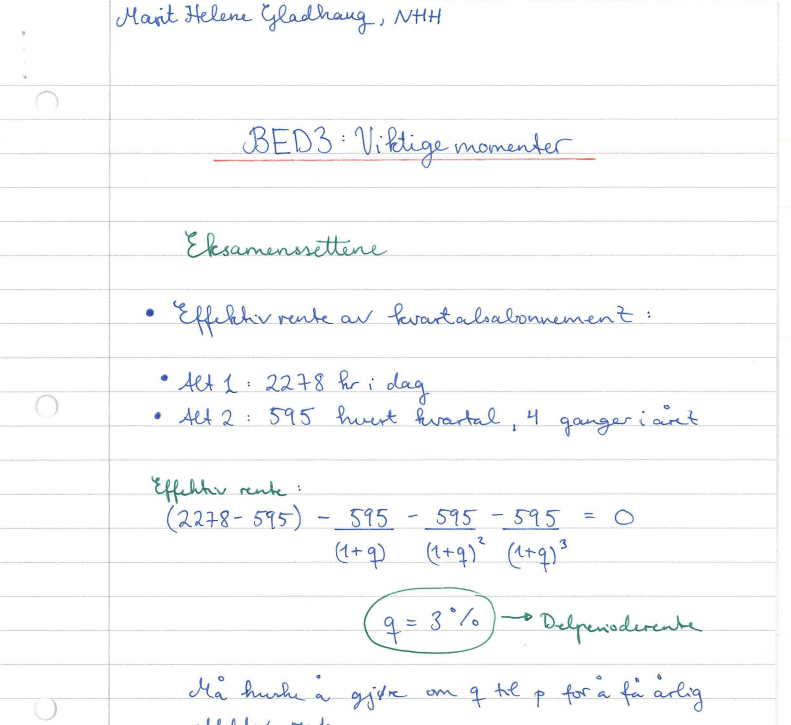 Marit Helene Gladhaug, NHH
BED3: Viktige momenter
Eksamenssettene
• Effektiv rente av kvartalsabonnement:
• Alt 1: 2278 kr i dag
• Alt 2: 595 hvert kvartal, 4 ganger i året
Effektiv rente:
(2278-595) - 595/(1+q) - 595/(1+q)² - 595/(1+q)³ = 0
q = 3% → Delperioderente
Må huske å gjøre om q til p for å få årlig